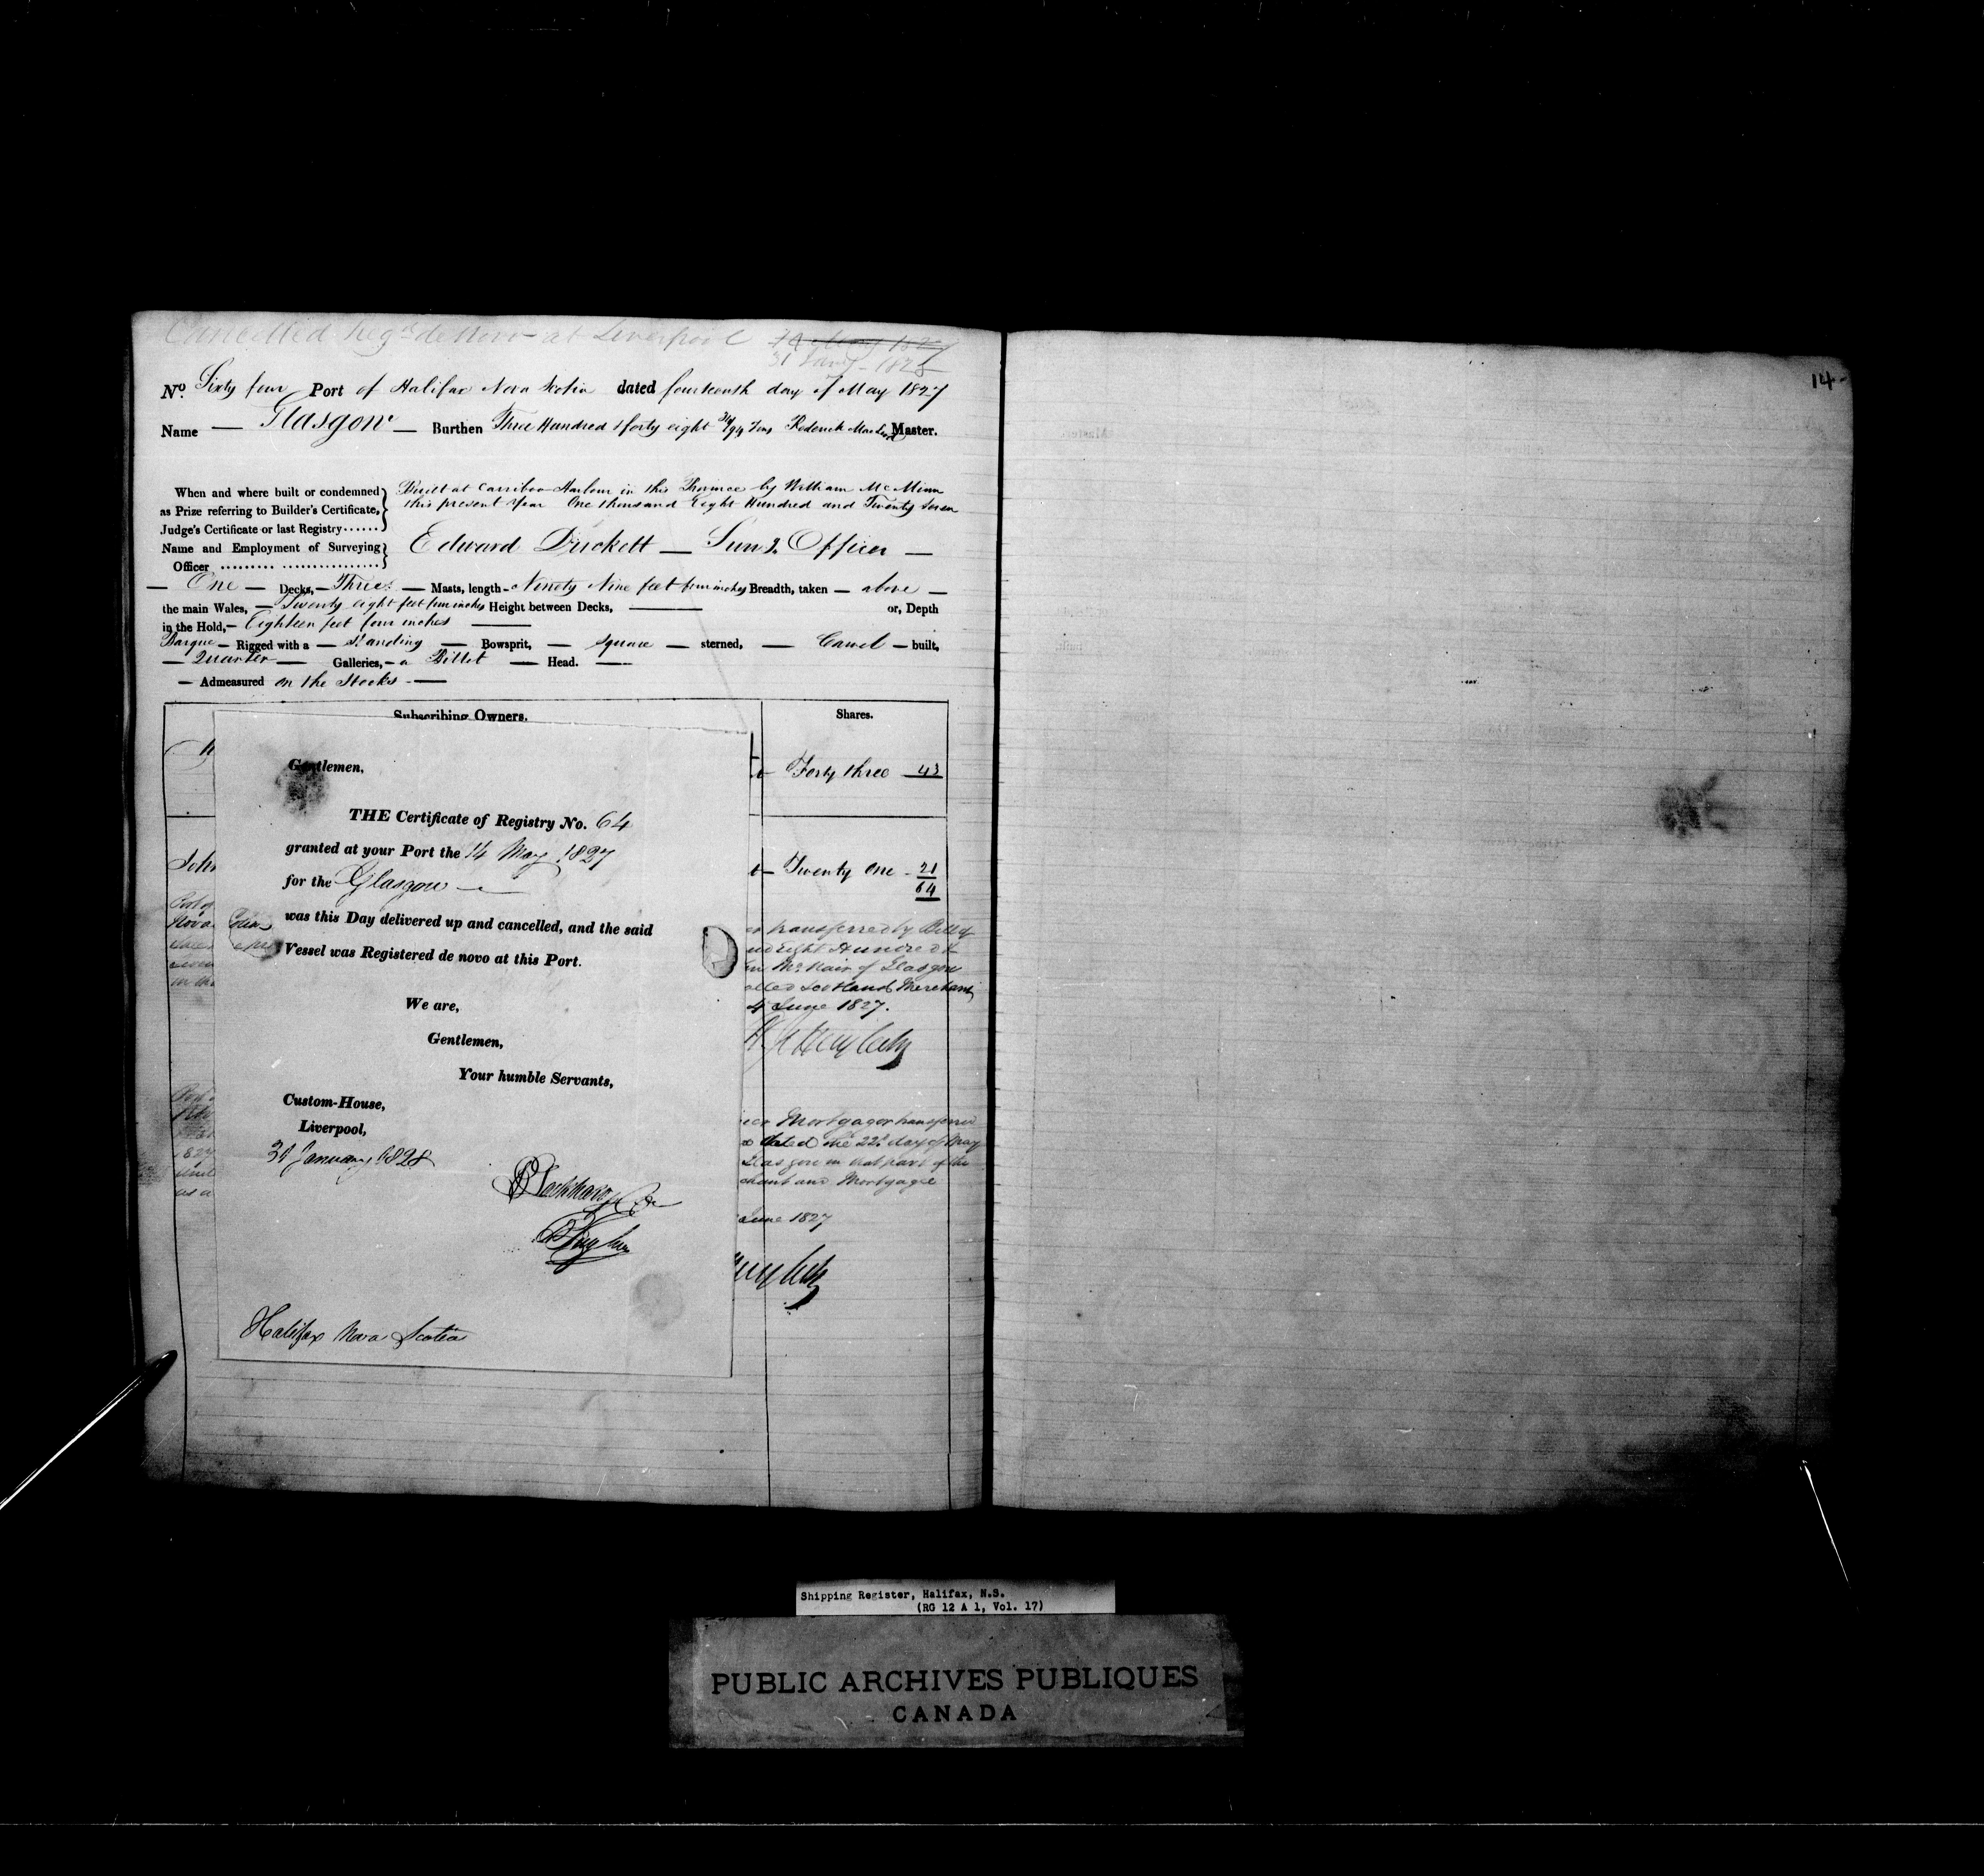 Cancelled Regd de Novo at Liverpool 14 May 1827
31 Jany 1828
No. Sixty four Port of Halifax Nova Scotia dated fourteenth day of May 1827
Name — Glasgow — Burthen Three Hundred & forty eight 34/94 Tons Roderick Master.
When and where built or condemned as Prize referring to Builder's Certificate, Judge's Certificate or last Registry......
Built at Carriboo Harbour in this Province by William McMinn
this present Year One thousand Eight Hundred and Twenty Seven
Name and Employment of Surveying Officer
Edward Duckett — Officer —
— One — Decks, — Three — Masts, length - Ninety Nine feet four inches Breadth, taken — above —
the main Wales, — Twenty eight feet four inches Height between Decks, — or, Depth
in the Hold, — Eighteen feet four inches —
Barque — Rigged with a — Standing — Bowsprit, — square — sterned, — Carvel — built,
— Quarter — Galleries, — a Billet — Head. —
— Admeasured on the Stocks —
Subscribing Owners. Shares.
Forty three 43
John
Twenty One - 21
64
Gentlemen,
THE Certificate of Registry No. 64
granted at your Port the 14 May 1827
for the Glasgow —
was this Day delivered up and cancelled, and the said
Vessel was Registered de novo at this Port.
We are,
Gentlemen,
Your humble Servants,
Custom-House,
Liverpool,
31 January 1828
Halifax Nova Scotia
transferred by Bill of
Eight Hundred &
McNair of Glasgow
Scotland Merchant
4 June 1827.
Mortgage transferred
dated the 22d day of May
Glasgow in that part of the
and Mortgagee
June 1827
14
Shipping Register, Halifax, N.S.
(RG 12 A 1, Vol. 17)
PUBLIC ARCHIVES PUBLIQUES
CANADA